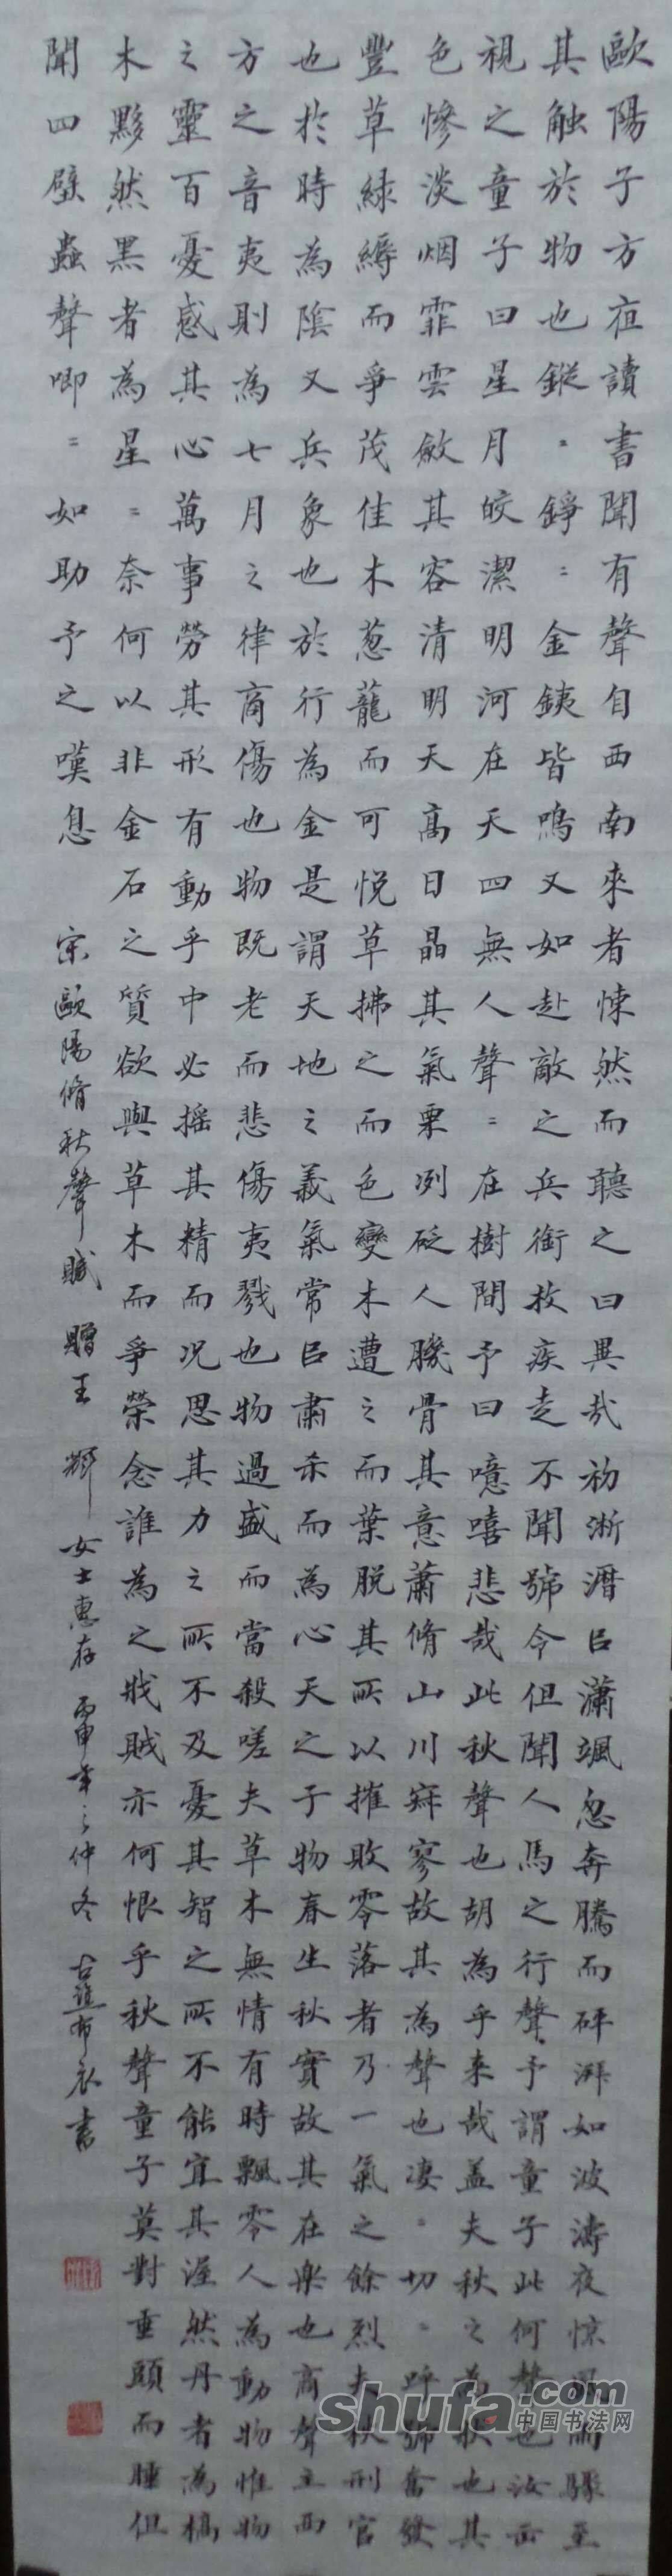 歐陽子方夜讀書聞有聲自西南來者悚然而聽之曰異哉初淅瀝㠯瀟颯忽奔騰而砰湃如波濤夜惊風雨驟至
其触於物也鏦〻錚〻金銕皆鳴又如赴敵之兵銜枚疾走不聞號令但聞人馬之行聲予謂童子此何聲也汝出
視之童子曰星月皎潔明河在天四無人聲〻在樹間予曰噫嘻悲哉此秋聲也胡為乎来哉盖夫秋之為狀也其
色慘淡烟霏雲斂其容清明天高日晶其氣栗冽砭人膌骨其意蕭脩山川寂寥故其為聲也凄〻切〻呼號奮發
豐草緑縟而爭茂佳木葱蘢而可悦草拂之而色變木遭之而葉脱其所以摧敗零落者乃一氣之餘烈夫秋刑官
也於時為陰又兵象也於行為金是謂天地之義氣常㠯肅杀而為心天之于物春生秋實故其在樂也商聲主西
方之音夷則為七月之律商傷也物既老而悲傷夷戮也物過盛而當殺嗟夫草木無情有時飄零人為動物惟物
之靈百憂感其心萬事勞其形有動乎中必摇其精而况思其力之所不及憂其智之所不能宜其渥然丹者為槁
木黟然黑者為星〻奈何以非金石之質欲與草木而爭榮念誰為之戕賊亦何恨乎秋聲童子莫對垂頭而睡但
聞四壁蟲聲唧〻如助予之嘆息 宗歐陽脩秋聲賦 贈王輝女士惠存 丙申年之仲冬 古譙布衣書
shufa.com
中国书法网